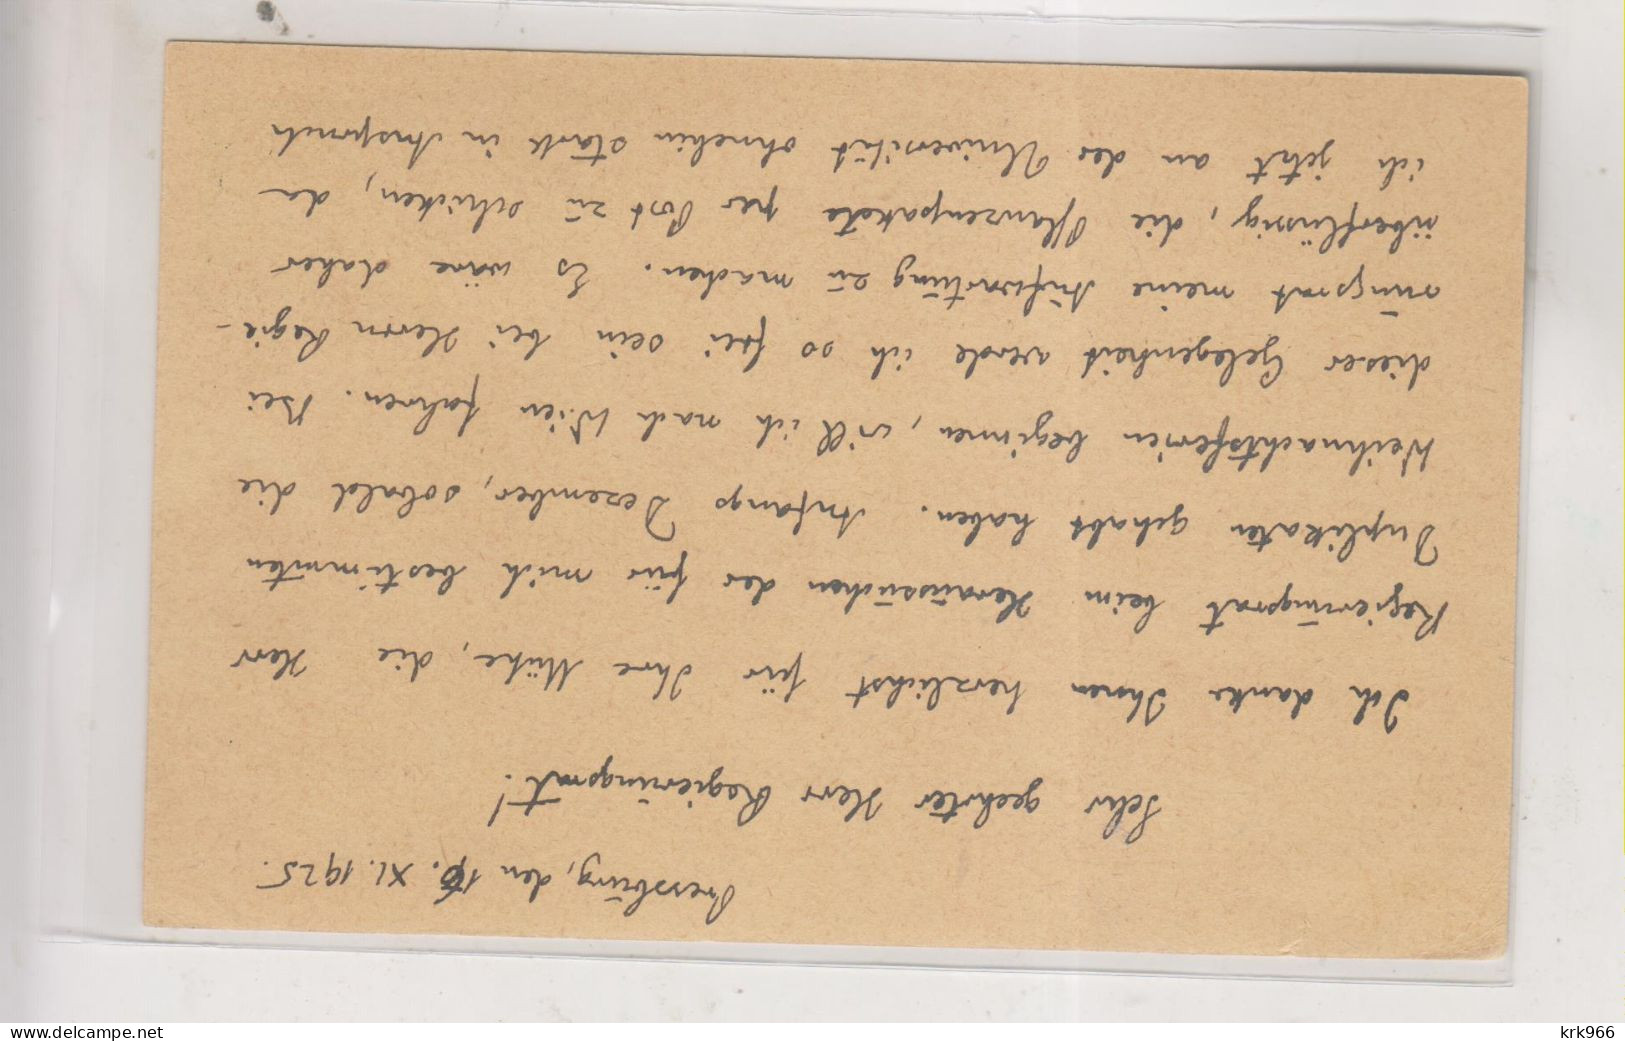 Pressburg, den 16. XI. 1925.
Sehr geehrter Herr Regierungsrat!
Ich danke Ihnen herzlichst für Ihre Mühe, die Herr
Regierungsrat beim Heraussuchen der für mich bestimmten
Duplikaten gehabt haben. Anfangs Dezember, sobald die
Weihnachtsferien beginnen, will ich nach Wien fahren. Bei
dieser Gelegenheit werde ich so frei sein bei Herrn Regie-
rungsrat meine Aufwartung zu machen. Es wäre daher
überflüssig, die Pflanzenpakete per Post zu schicken, da
ich jetzt an der Universität ohnehin stark in Anspruch
www.delcampe.net
krk966